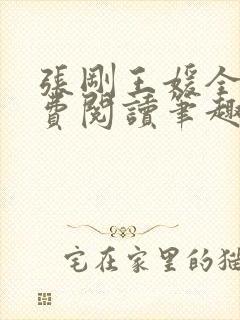 張剛王媛全
費閱讀筆趣
宅在家里的猫